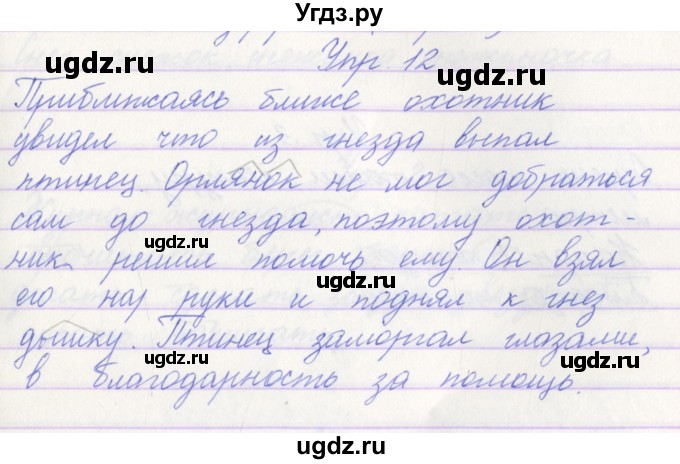 Угдз.ру
Упр 12
Приближаясь ближе охотник
увидел что из гнезда выпал
птинец. Орлянок не мог добраться
сам до гнезда, поэтому охот-
ник решил помочь ему. Он взял
его на руки и поднял к гнез
дышку. Птинец заморгал глазами,
в благодарность за помощь.
ugdz.ru
ugdz.ru
ugdz.ru
ugdz.ru
ugdz.ru
ugdz.ru
ugdz.ru
ugdz.ru
ugdz.ru